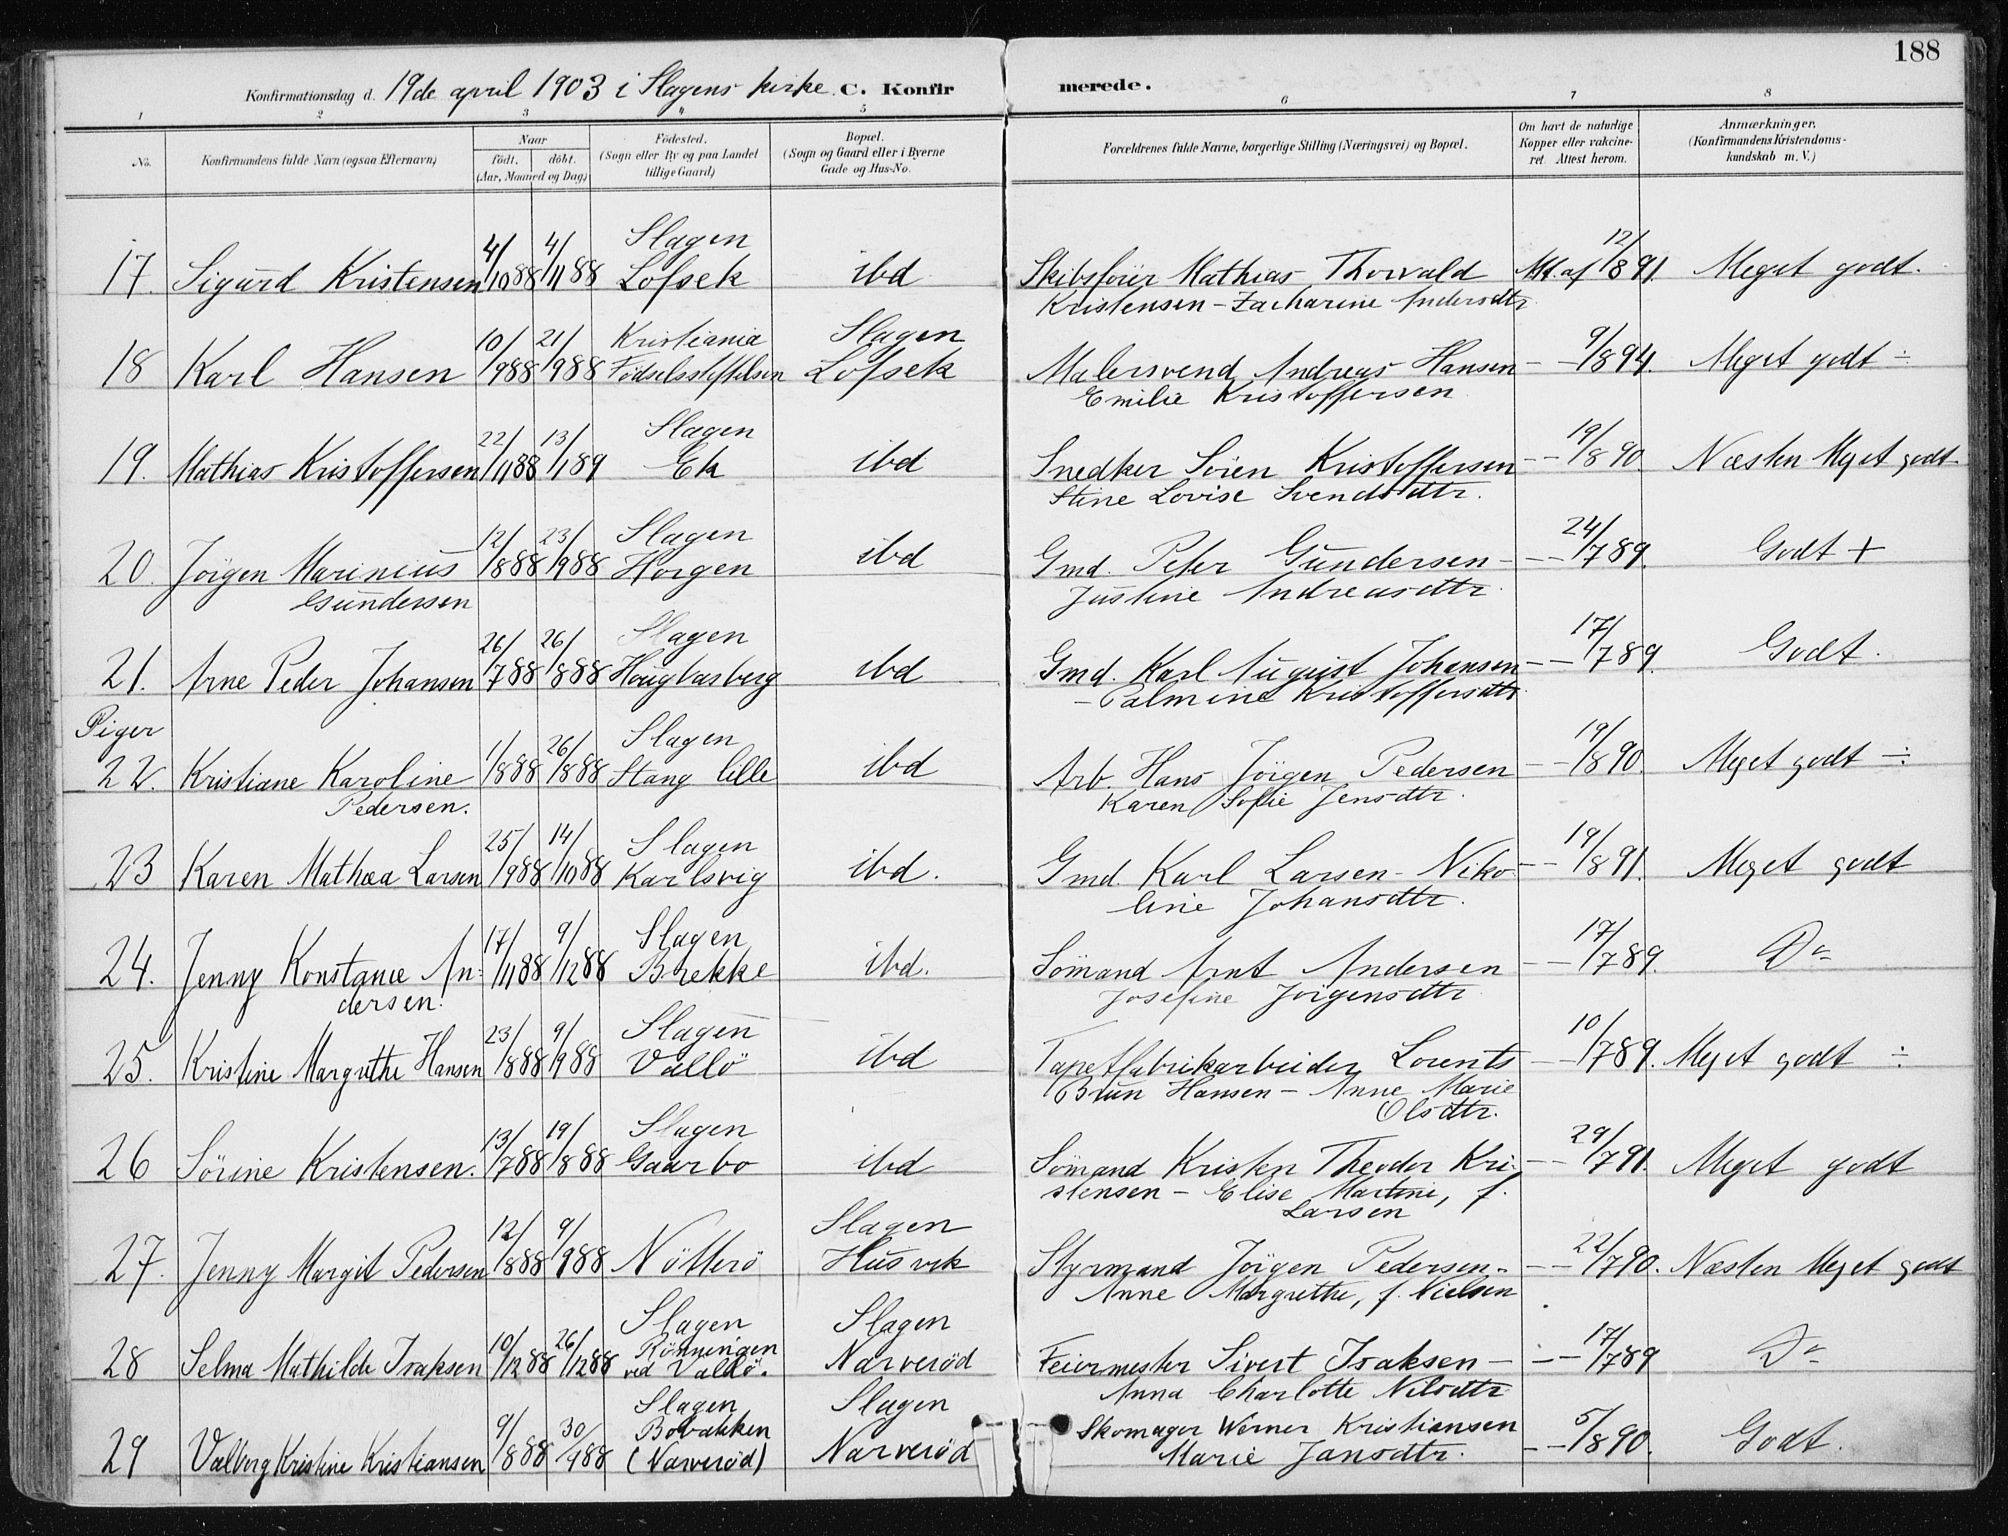 188
Konfirmationsdag d. 19de april 1903 i Slagens kirke. C. Konfirmerede.
1 2 3 4 5 6 7 8
No. Konfirmandens fulde Navn (ogsaa Efternavn) Naar født. døbt. (Aar, Maaned og Dag) Födested. (Sogn eller By og paa Landet tillige Gaard) Bopæl. (Sogn og Gaard eller i Byerne Gade og Hus-No. Forældrenes fulde Navne, borgerlige Stilling (Næringsvei) og Bopæl. Om havt de naturlige Kopper eller vakcineret. Attest herom. Anmærkninger. (Konfirmandens Kristendomskundskab m. V.)
17. Sigurd Kristensen 4/10 88 4/11 88 Slagen Lofsek ibd Skibsfører Mathias Thorvald Att. af 12/8 91. Meget godt.
Kristensen - Zacharine Andersdtr
18 Karl Hansen 10/9 88 21/9 88 Kristiania Fødselsstiftelsen Slagen Lofsek Malersvend Andreas Hansen - - 9/8 94. Meget godt ÷
Emilie Kristoffersen
19. Mathias Kristoffersen 22/11 88 13/1 89 Slagen Ek ibd Snedker Sören Kristoffersen - - 19/8 90. Næsten Meget godt
Stine Lovise Svendsdtr.
20. Jörgen Marinius 12/8 88 23/9 88 Slagen Horgen ibd Gmd. Peter Gundersen - - - 24/7 89. Godt +
Gundersen Justine Andreasdtr.
21. Arne Peder Johansen 26/7 88 26/8 88 Slagen Hougarsberg ibd Gmd. Karl August Johansen - - 17/7 89. Godt.
- Palmine Kristoffersdtr
Piger
22. Kristiane Karoline 1/8 88 26/8 88 Slagen Stang lille ibd Arb. Hans Jörgen Pedersen - - 19/8 90. Meget godt ÷
Pedersen. Karen Sofie Jensdtr.
23 Karen Mathea Larsen 25/9 88 14/10 88 Slagen Karlsvig ibd. Gmd. Karl Larsen - Niko - - 19/8 91. Meget godt
line Johansdtr.
24. Jenny Konstance An- 17/11 88 9/12 88 Slagen Brekke ibd. Sömand Arnt Andersen - - 17/7 89. Do
dersen. Josefine Jörgensdtr
25. Kristine Margrethe Hansen 23/8 88 9/9 88 Slagen Vallö ibd Tapetfabrikarbeider Lorents - - 10/7 89. Meget godt ÷
Brun Hansen - Anne Marie
Olsdtr.
26 Sörine Kristensen. 13/7 88 19/8 88 Slagen Gaarbo ibd Sömand Kristen Theodor Kri- - - 29/7 91. Meget godt
stensen - Elise Martine, f.
Larsen
27. Jenny Margit Pedersen 12/8 88 9/9 88 Nötterö Slagen Husvik Styrmand Jörgen Pedersen. - - 22/7 90. Næsten Meget godt
Anne Margrethe, f. Nielsen
28 Selma Mathilde Isaksen 10/12 88 26/12 88 Slagen Rönningen ved Vallö. Slagen Narveröd Feiermester Sivert Isaksen - - - 17/7 89 Do
Anna Charlotte Nilsdtr
29 Valborg Kristine Kristiansen 9/8 88 30/9 88 Slagen Bobakken (Narveröd) Slagen Narveröd Skomager Werner Kristiansen - - 5/8 90. Godt.
Marie Jansdtr.